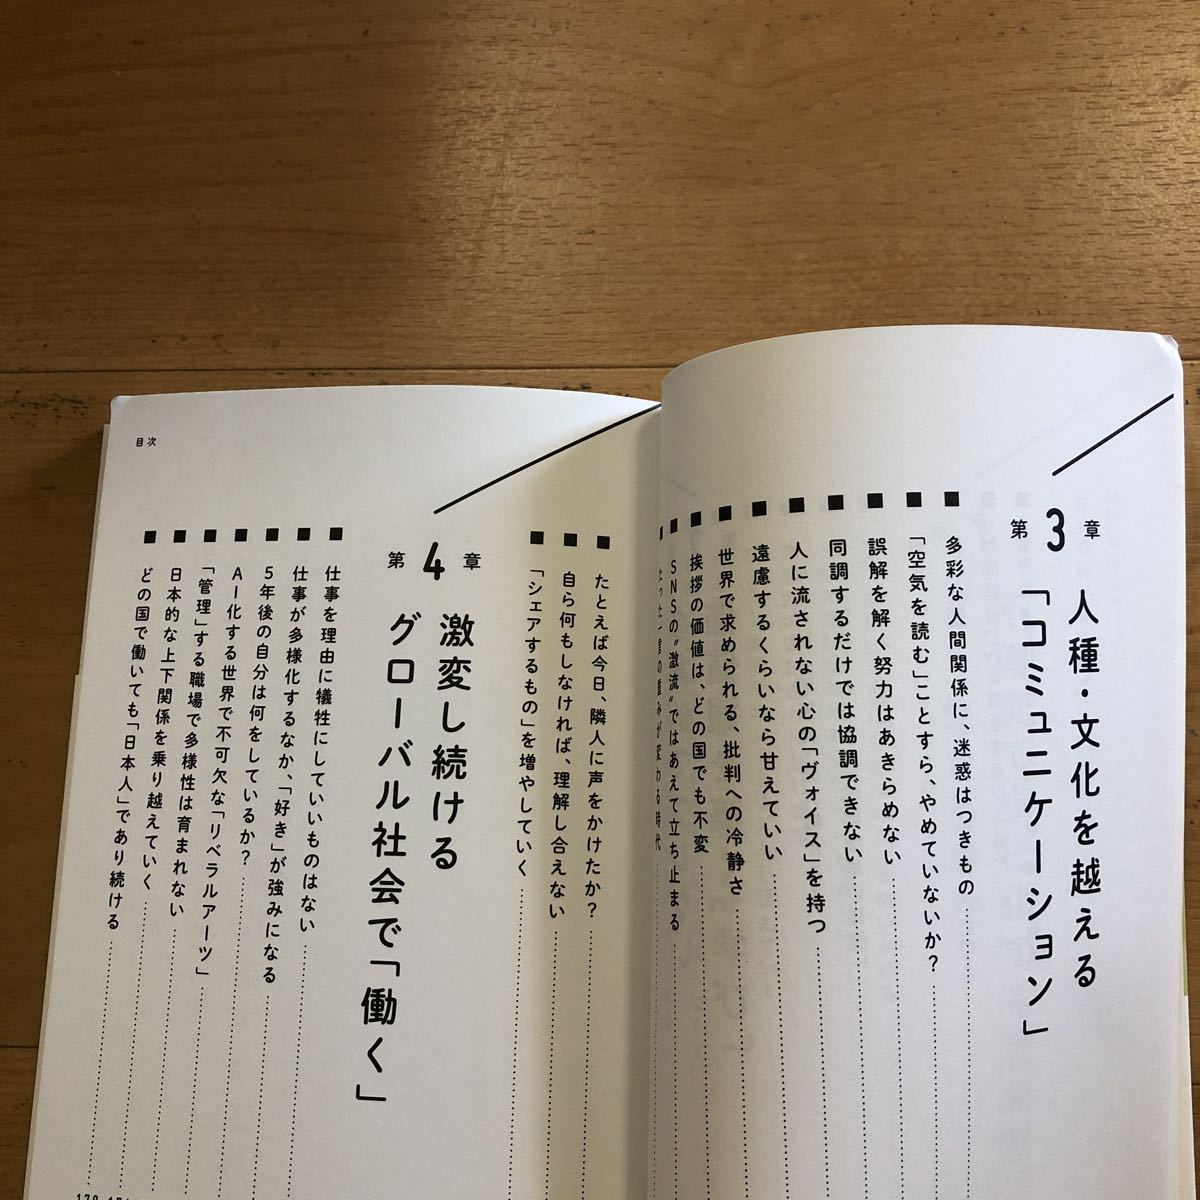 第3章
人種・文化を越える
「コミュニケーション」
■ 多彩な人間関係に、迷惑はつきもの
■ 「空気を読む」ことすら、やめていないか?
■ 誤解を解く努力はあきらめない
■ 同調するだけでは協調できない
■ 人に流されない心の「ヴォイス」を持つ
■ 遠慮するくらいなら甘えていい
■ 世界で求められる、批判への冷静さ
■ 挨拶の価値は、どの国でも不変
■ SNSの“激流”ではあえて立ち止まる
■ たった一言の重みが変わる時代
■ たとえば今日、隣人に声をかけたか?
■ 自ら何もしなければ、理解し合えない
■ 「シェアするもの」を増やしていく
第4章
激変し続ける
グローバル社会で「働く」
■ 仕事を理由に犠牲にしていいものはない
■ 仕事が多様化するなか、「好き」が強みになる
■ 5年後の自分は何をしているか?
■ AI化する世界で不可欠な「リベラルアーツ」
■ 「管理」する職場で多様性は育まれない
■ 日本的な上下関係を乗り越えていく
■ どの国で働いても「日本人」であり続ける
目次